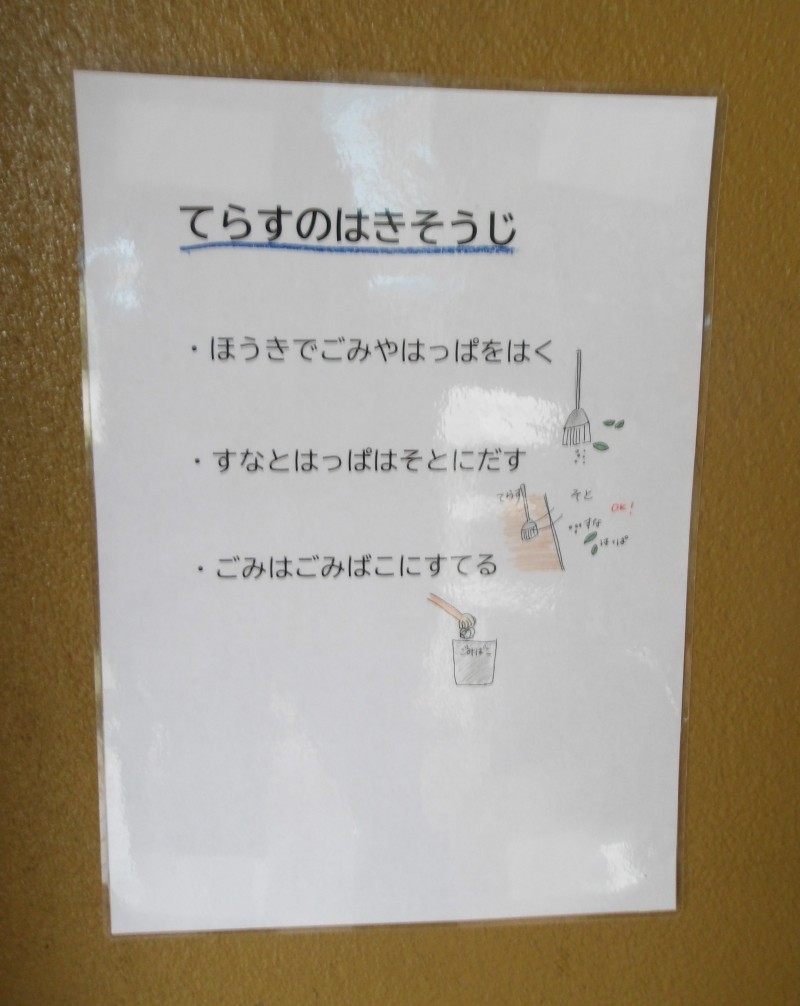 てらすのはきそうじ
・ほうきでごみやはっぱをはく
・すなとはっぱはそとにだす
てらす
そと
OK!
すな
はっぱ
・ごみはごみばこにすてる
ごみばこ